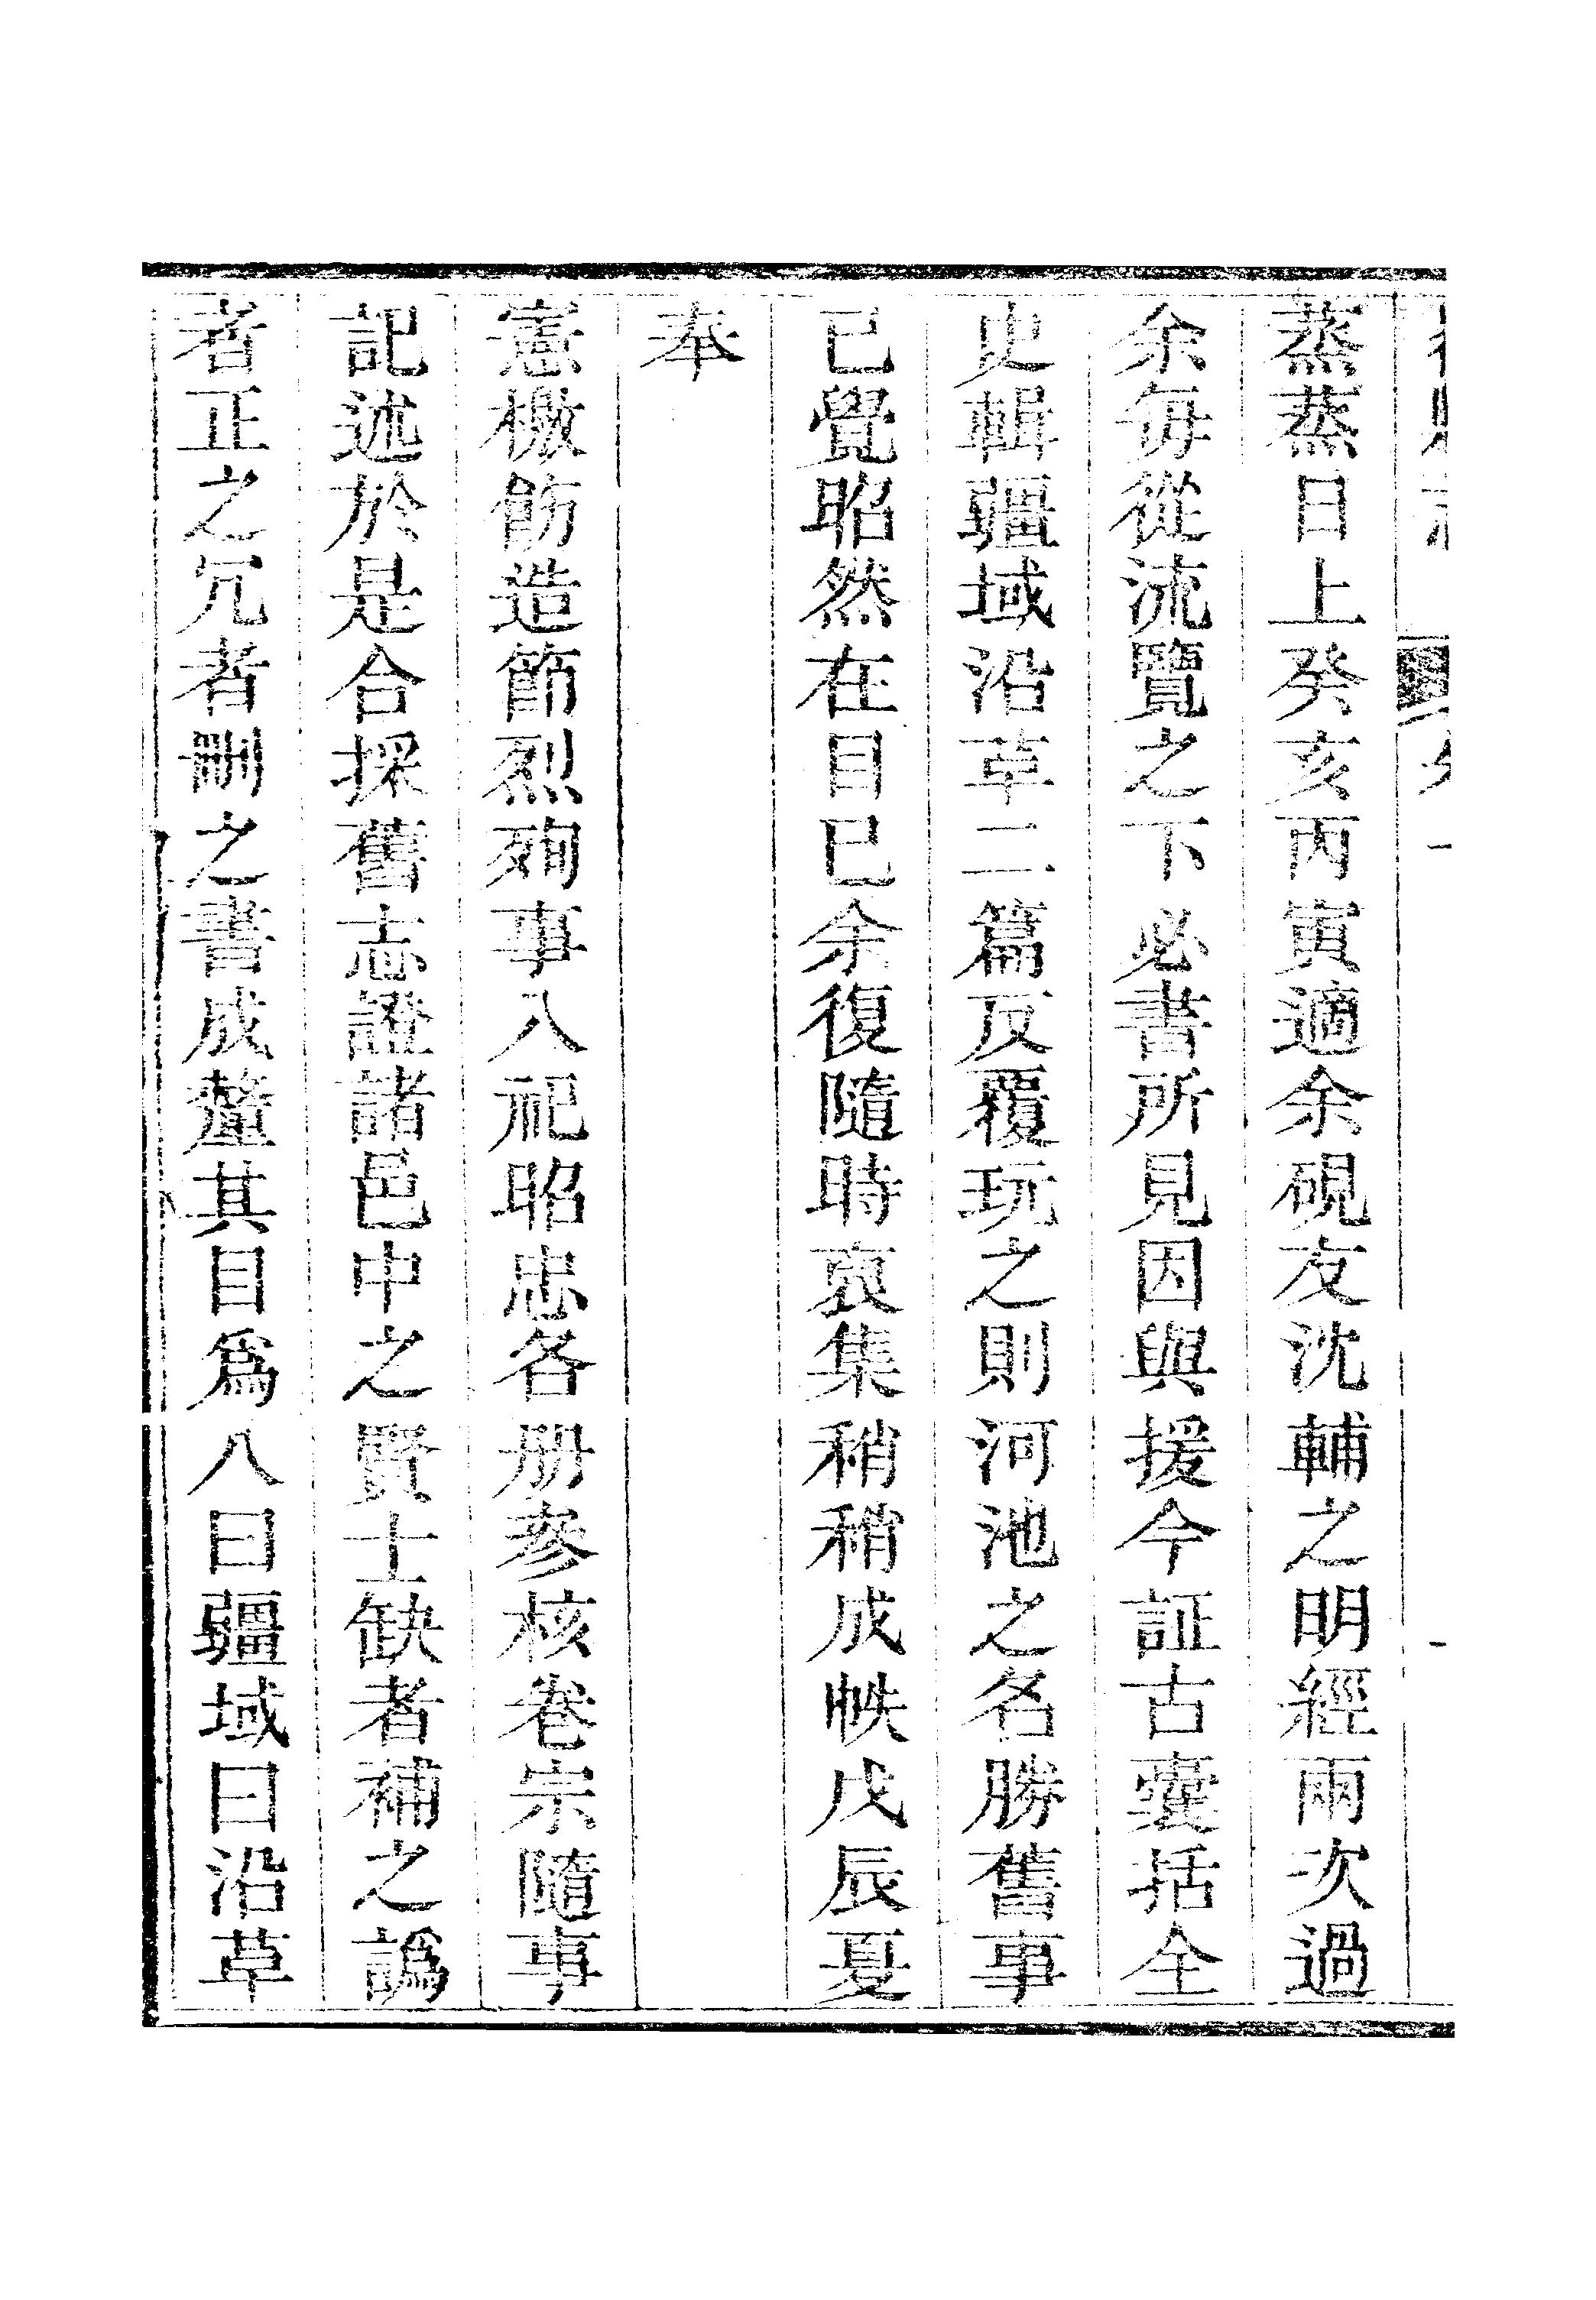 蒸蒸日上癸亥丙寅適余硯友沈輔之明經兩次過
余每從流覽之下必書所見因與援今証古囊括全
史輯疆域沿革二篇反覆玩之則河池之名勝舊事
已覺昭然在目已余復隨時裒集稍稍成帙戊辰夏
奉
憲檄飭造節烈殉事入祀昭忠各册參核卷宗隨事
記述於是合採舊志證諸邑中之賢士缺者補之譌
者正之冗者刪之書成釐其目爲八曰疆域曰沿革